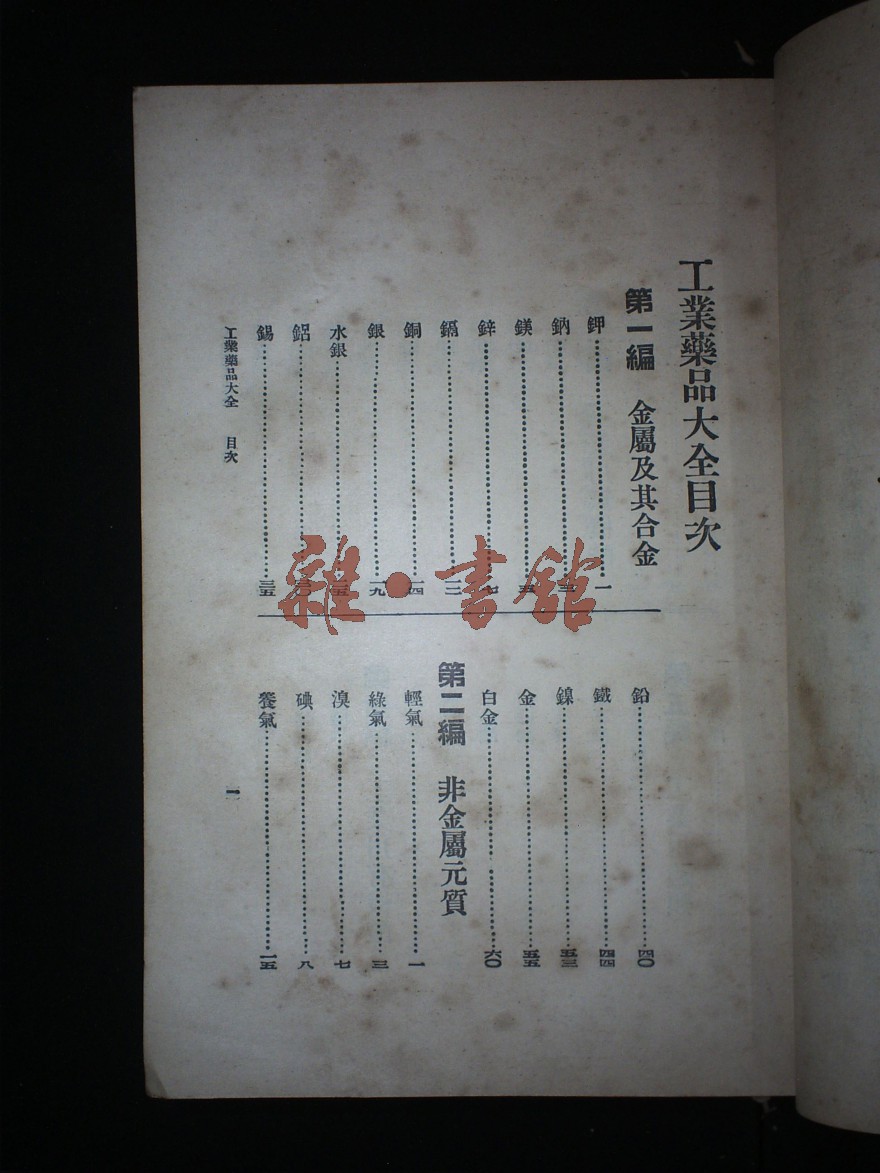 工業藥品大全目次
第一編 金屬及其合金
鉀……一
鈉……三
鎂……五
鋅……七
鎘……一二
銅……一四
銀……一九
水銀……二五
鋁……三〇
錫……三五
鉛……四〇
鐵……四四
鎳……五三
金……五五
白金……六〇
第二編 非金屬元質
輕氣……一
綠氣……三
溴……七
碘……八
養氣……一五
工業藥品大全 目次
一
雜·書館